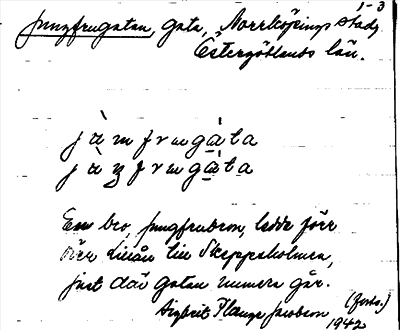 1-3
Jungfrugatan, gata, Norrköpings stad,
Östergötlands län.
jàmfrugàta
jàŋfrugàta
En bro, Jungfrubron, ledde förr
över Lillån till Skeppsholmen,
just där gatan numera går.
Sigbrit Plange Jacobson (forts.)
1942